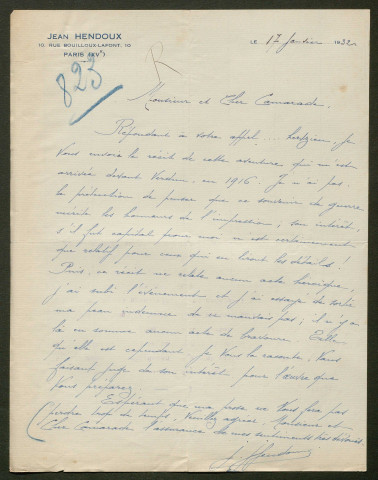 JEAN HENDOUX
10, RUE BOUILLOUX-LAFONT, 10
PARIS (XVe)
LE 17 Janvier 1932
823
Monsieur et Cher Camarade.
Répondant à votre appel ... je
vous envoie le récit de cette aventure qui m'est
arrivée devant Verdun, en 1916. Je n'ai pas
la prétention de penser que ce souvenir de guerre
mérite les honneurs de l'impression ; son intérêt,
s'il fut capital pour moi n'est certainement
que relatif pour ceux qui en liront les détails !
Puis, ce récit ne relate aucun acte héroïque,
j'ai subi l'événement et j'ai essayé de sortir
ma peau indemne de ce mauvais pas ; il n'y a
là en somme aucun acte de bravoure. Telle
qu'elle est cependant je vous la raconte, vous
faisant juge de son intérêt pour l'œuvre que
vous préparez.
Espérant que ma prose ne vous fera pas
perdre trop de temps, veuillez agréer, Monsieur et
Cher Camarade l'assurance de mes sentiments très dévoués
J. Hendoux